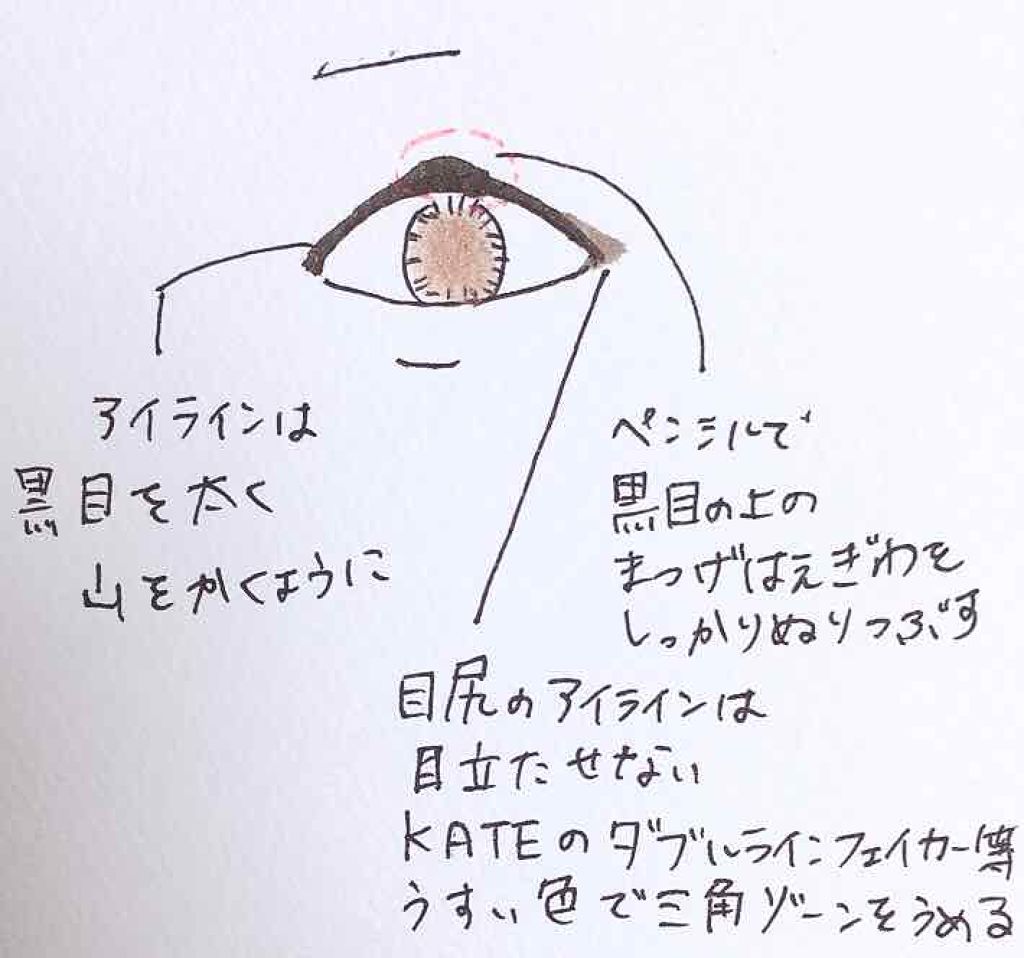 アイラインは
黒目を太く
山をかくように
ペンシルで
黒目の上の
まつげはえぎわを
しっかりぬりつぶす
目尻のアイラインは
目立たせない
KATEのダブルラインフェイカー等
うすい色で三角ゾーンをうめる